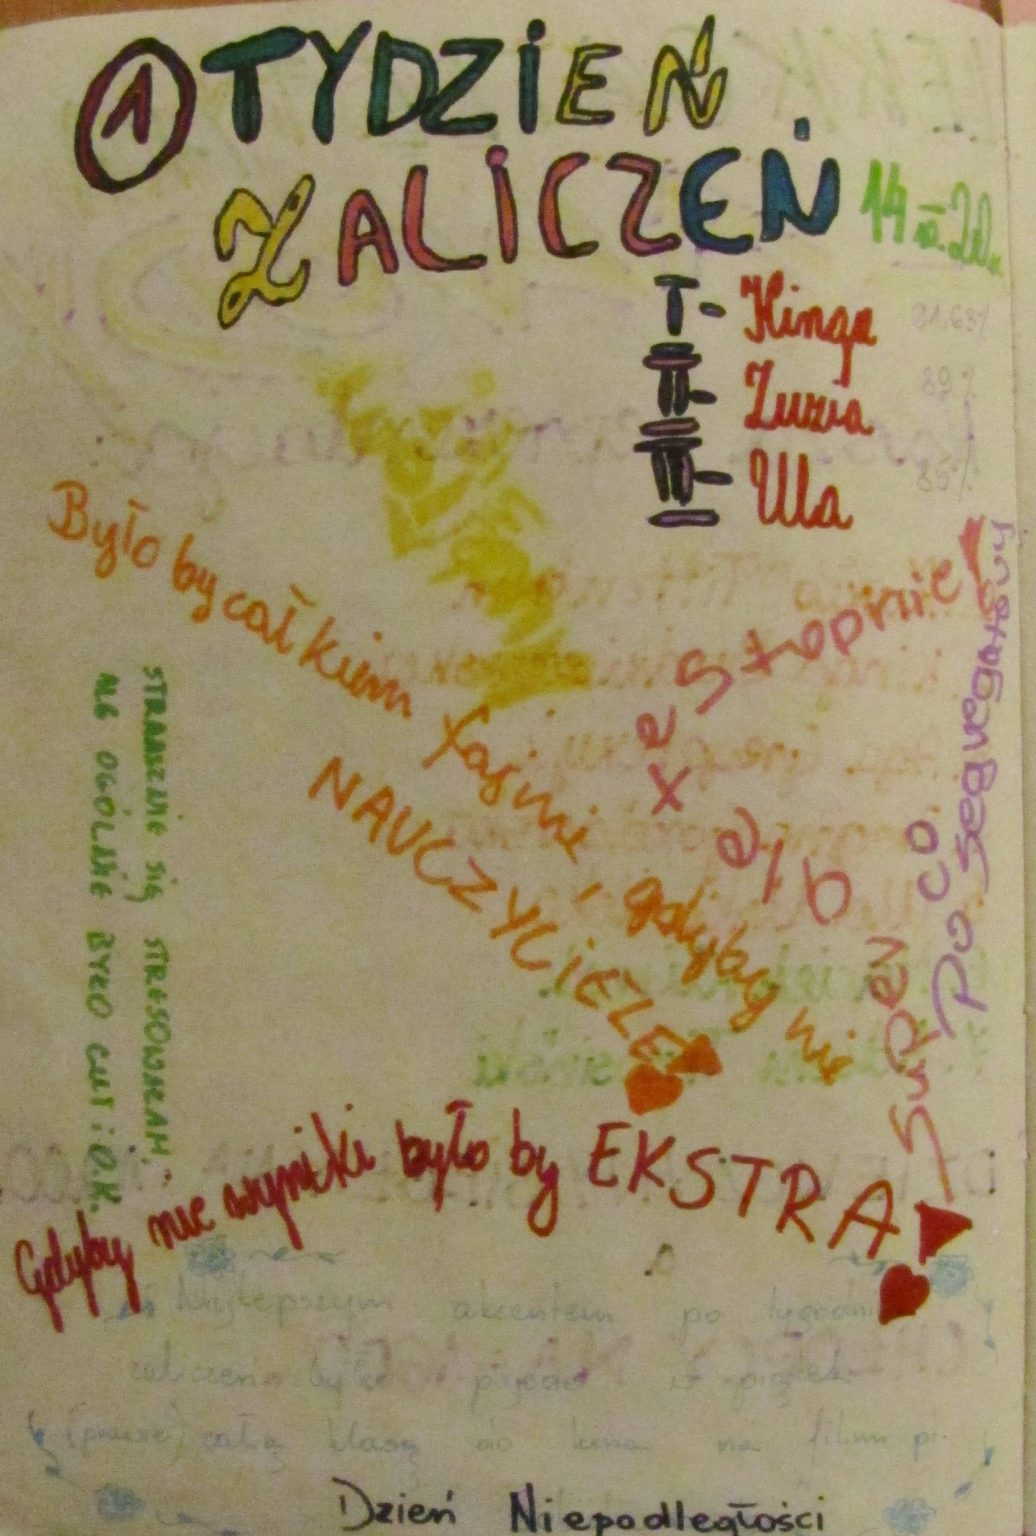 1 TYDZIEŃ
ZALICZEŃ
I - Kinga
II - Zuzia
III - Ula
Było by całkiem fajnie, gdyby nie
NAUCZYCIELE!
Super ale te stopnie!
Po co segregatory
STRASZNIE SIĘ STRESOWAŁAM,
ALE OGÓLNIE BYŁO CUT i O.K.
Gdyby nie wyniki było by EKSTRA!
Najlepszym akcentem po tygodniu
zaliczeń było pójście w piątek
(prawie) całą klasą do kina na film pt.
Dzień Niepodległości